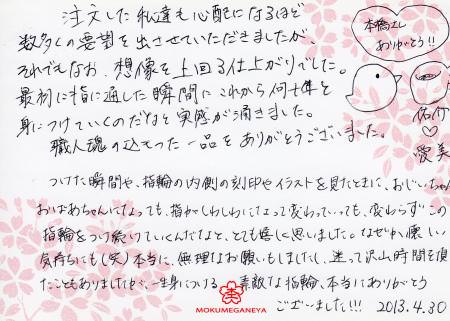 注文した私達も心配になるほど
数多くの要望を出させていただきましたが、
それでもなお、想像を上回る仕上がりでした。
最初に指に通した瞬間にこれから何十年と
身につけていくのだなと実感が涌きました。
職人魂の込もった一品をありがとうございました。
本橋さん
ありがとう!!
佑介
♡
愛美
つけた瞬間や、指輪の内側の刻印やイラストを見たときに、おじいちゃん
おばあちゃんになっても、指がしわしわになって変わっていっても、変わらずこの
指輪をつけ続けていくんだなと、とても嬉しく思いました。なぜか懐しい
気持ちにも(笑)本当に、無理なお願いもしましたし、迷って沢山時間を頂い
たこともありましたが、一生身につける素敵な指輪、本当にありがとう
ございました!!!
2013.4.30
MOKUMEGANEYA